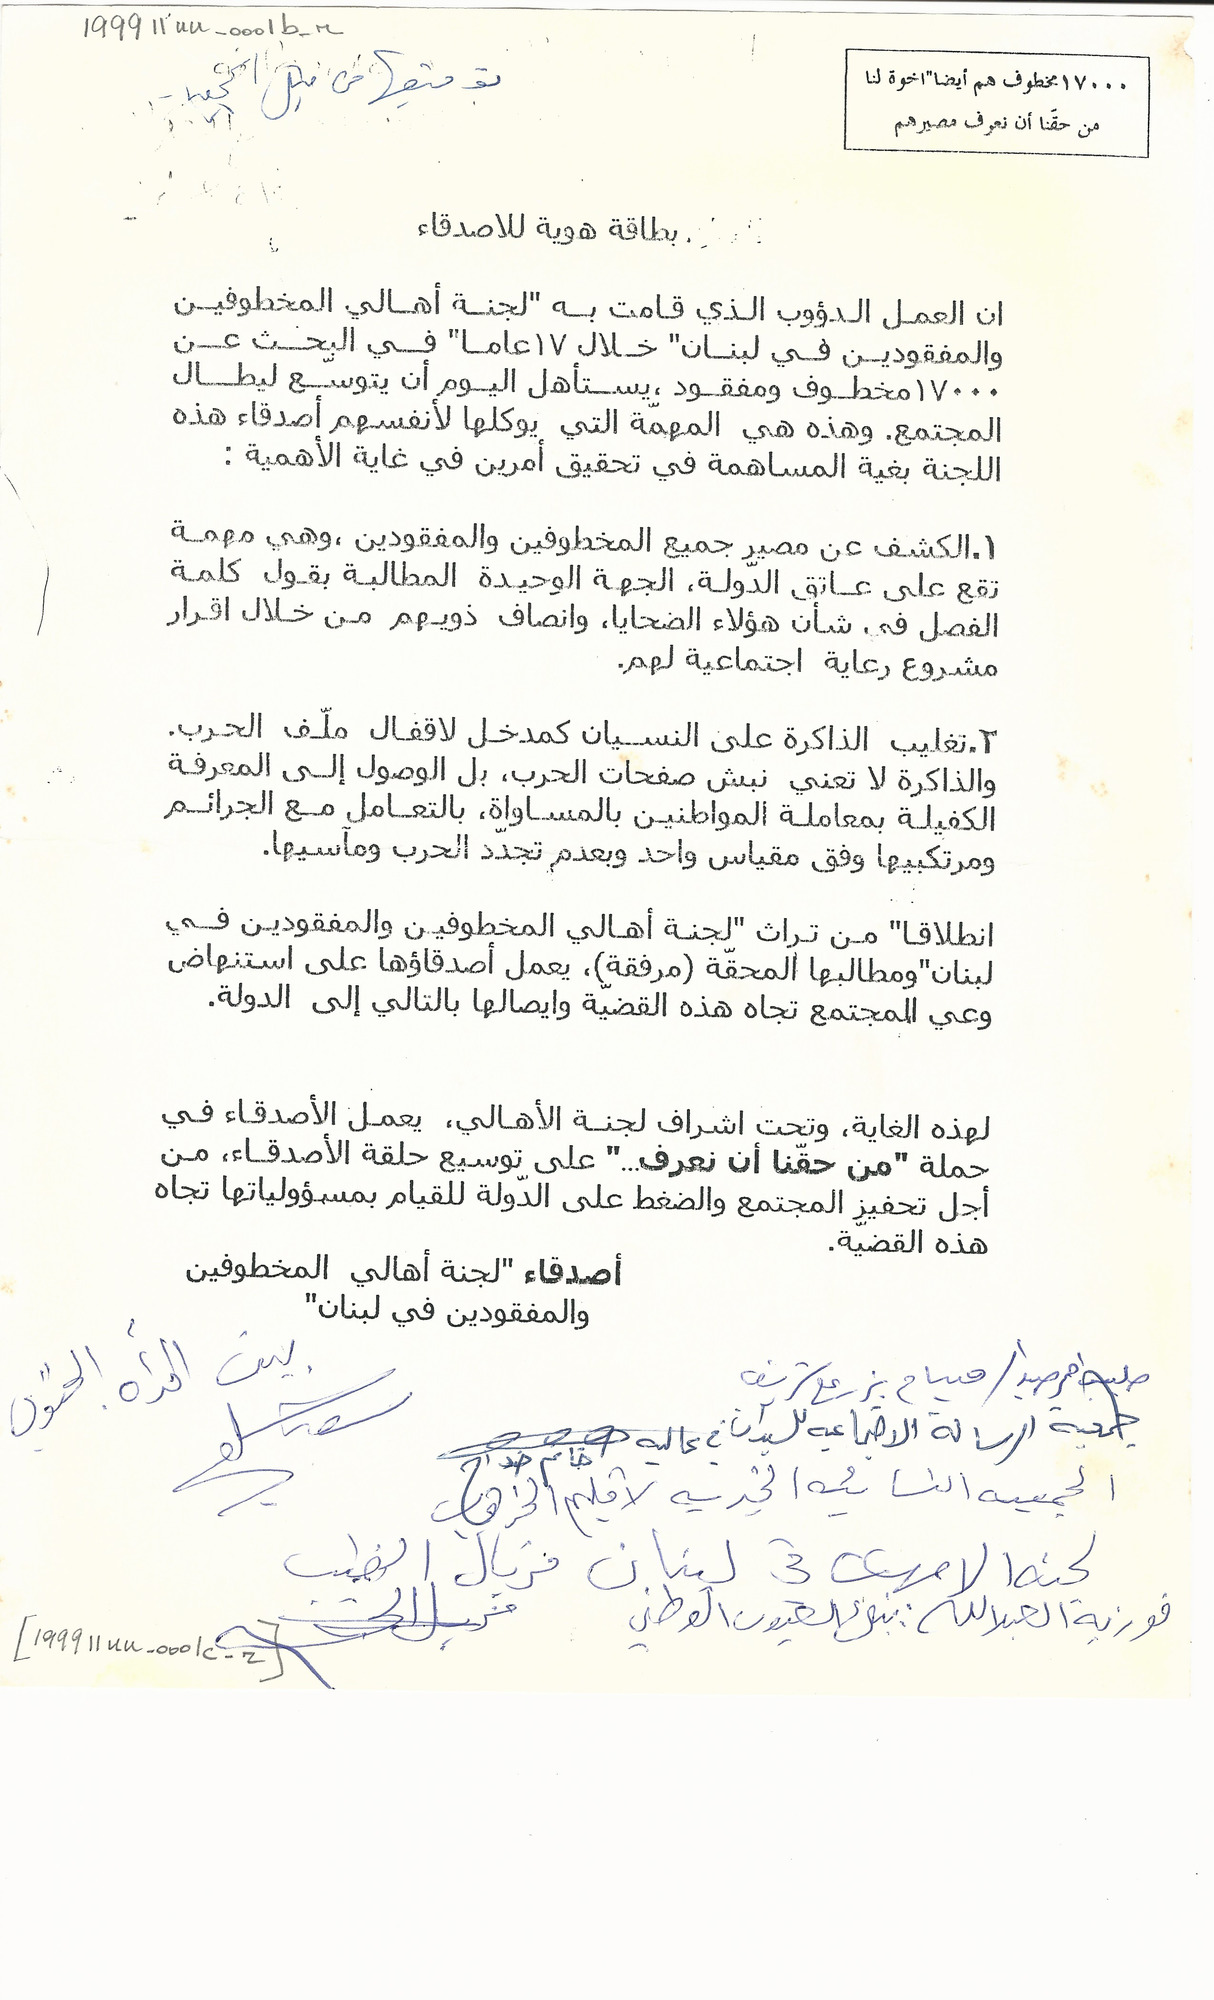 199911nn_0001b_r
توقيعها من قبل
١٧٠٠٠مخطوف هم أيضا"اخوة لنا
من حقّنا أن نعرف مصيرهم
بطاقة هوية للاصدقاء
ان العمل الدؤوب الذي قامت به "لجنة أهالي المخطوفين
والمفقودين في لبنان" خلال ١٧عاما" في البحث عن
١٧٠٠٠مخطوف ومفقود ،يستأهل اليوم أن يتوسّع ليطال
المجتمع. وهذه هي المهمّة التي يوكلها لأنفسهم أصدقاء هذه
اللجنة بغية المساهمة في تحقيق أمرين في غاية الأهمية :
١.الكشف عن مصير جميع المخطوفين والمفقودين ،وهي مهمة
تقع على عاتق الدّولة، الجهة الوحيدة المطالبة بقول كلمة
الفصل في شأن هؤلاء الضحايا، وانصاف ذويهم من خلال اقرار
مشروع رعاية اجتماعية لهم.
٢.تغليب الذاكرة على النسيان كمدخل لاقفال ملّف الحرب.
والذاكرة لا تعني نبش صفحات الحرب، بل الوصول إلى المعرفة
الكفيلة بمعاملة المواطنين بالمساواة، بالتعامل مع الجرائم
ومرتكبيها وفق مقياس واحد وبعدم تجدّد الحرب ومآسيها.
انطلاقا" من تراث "لجنة أهالي المخطوفين والمفقودين في
لبنان"ومطالبها المحقّة (مرفقة)، يعمل أصدقاؤها على استنهاض
وعي المجتمع تجاه هذه القضيّة وايصالها بالتالي إلى الدولة.
لهذه الغاية، وتحت اشراف لجنة الأهالي، يعمل الأصدقاء في
حملة "من حقّنا أن نعرف.." على توسيع حلقة الأصدقاء، من
أجل تحفيز المجتمع والضغط على الدّولة للقيام بمسؤولياتها تجاه
هذه القضيّة.
أصدقاء "لجنة أهالي المخطوفين
والمفقودين في لبنان"
المرأة
جمعية الرسالة الاجتماعية للسيدات في عاليه
الجمعية النسائية الخيرية لاقليم الخروب
لجنة الامهات في لبنان فريال الخطيب
فوزية العبدالله
[199911nn_0001c_r]